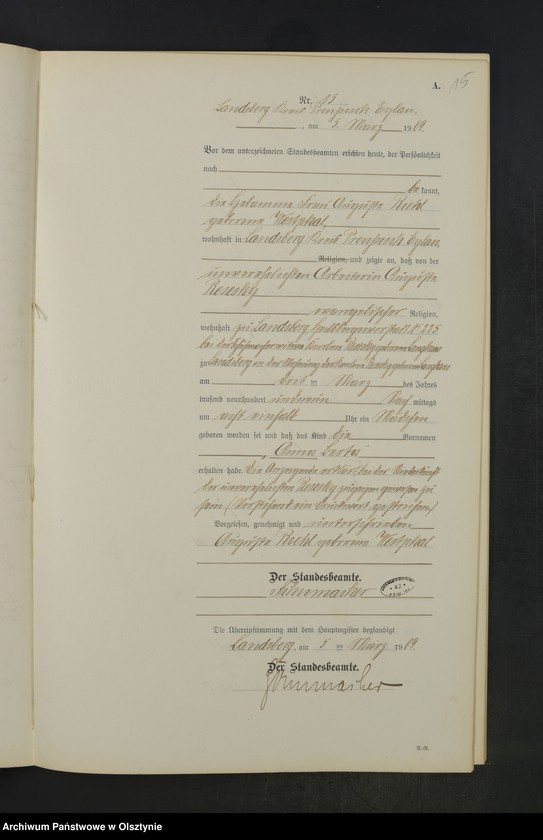 A. 15
Nr. 15
Landsberg Kreis Preußisch Eylau,
, am 5. März 1909.
Vor dem unterzeichneten Standesbeamten erschien heute, der Persönlichkeit
nach
be kannt,
die Hebamme Frau Auguste Kuhl
geborene Westphal,
wohnhaft in Landsberg Kreis Preußisch Eylau,
Religion, und zeigte an, daß von der
unverehelichten Arbeiterin Auguste
Resesky
evangelischer Religion,
wohnhaft in Landsberg
zu Landsberg in der Wohnung der
am drei ten März des Jahres
tausend neunhundert und neun Nach mittags
um acht einhalb Uhr ein Mädchen
geboren worden sei und daß das Kind die Vornamen
"Anna Berta"
erhalten habe. Die Anzeigende erklärt, bei der Niederkunft
der unverehelichten Resesky zugegen gewesen zu
sein. (Vorstehend ein Druckwort gestrichen)
Vorgelesen, genehmigt und unterschrieben
Auguste Kuhl geborene Westphal
Der Standesbeamte.
Schumacher
Die Übereinstimmung mit dem Hauptregister beglaubigt
Landsberg, am 5 ten März 1909.
Der Standesbeamte.
Schumacher
Archiwum Państwowe w Olsztynie